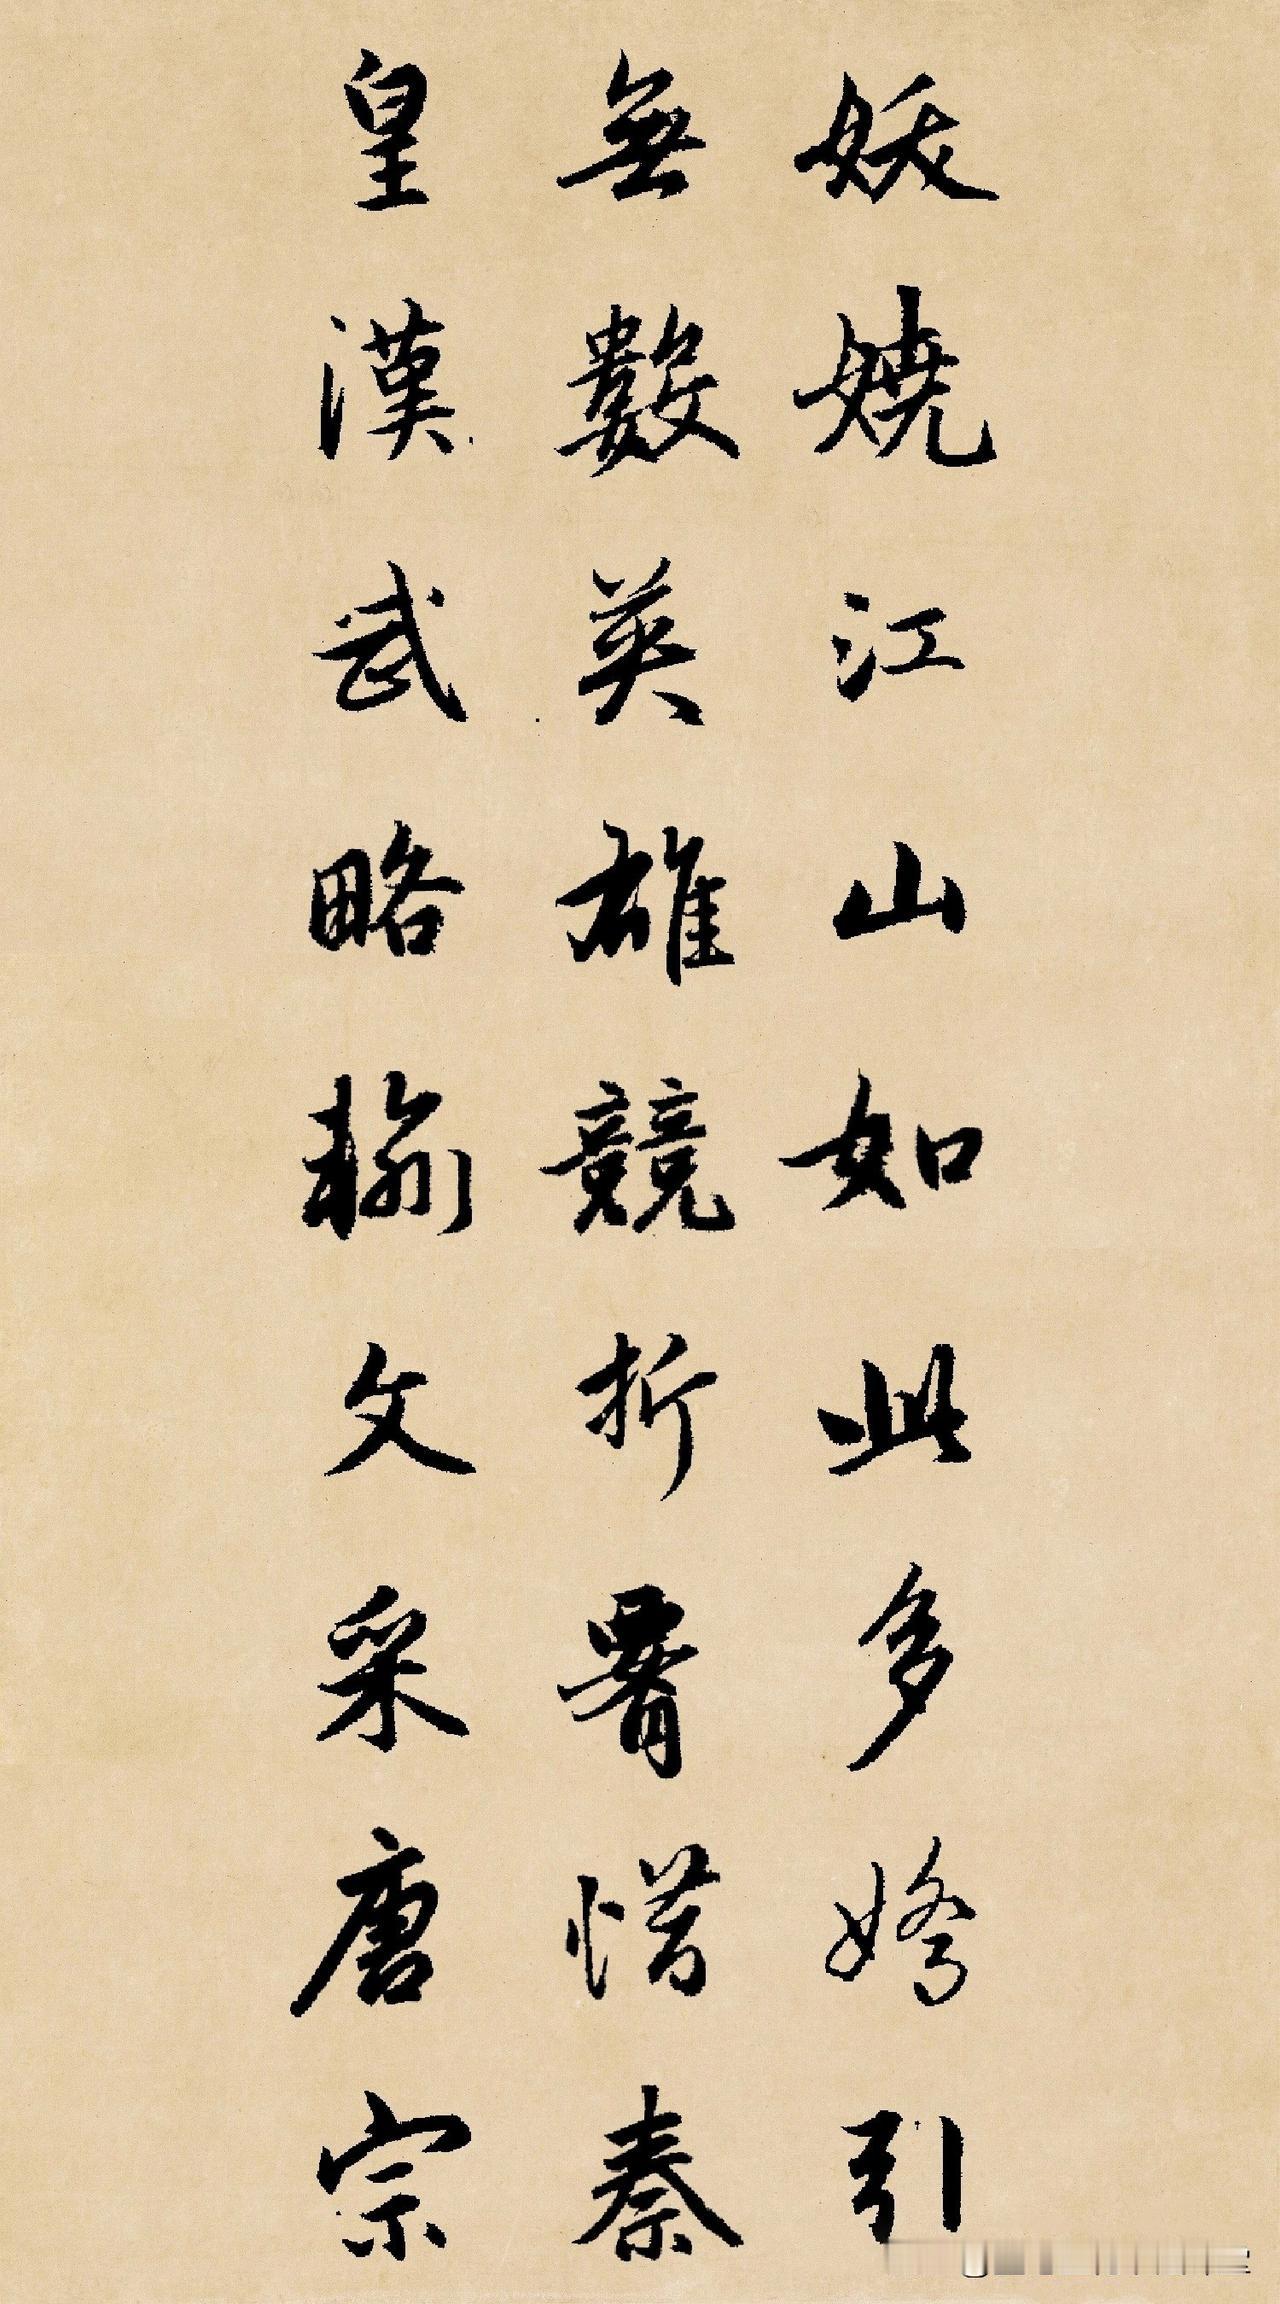 妖嬈江山如此多嬌引
無數英雄競折腰惜秦
皇漢武略輸文采唐宗